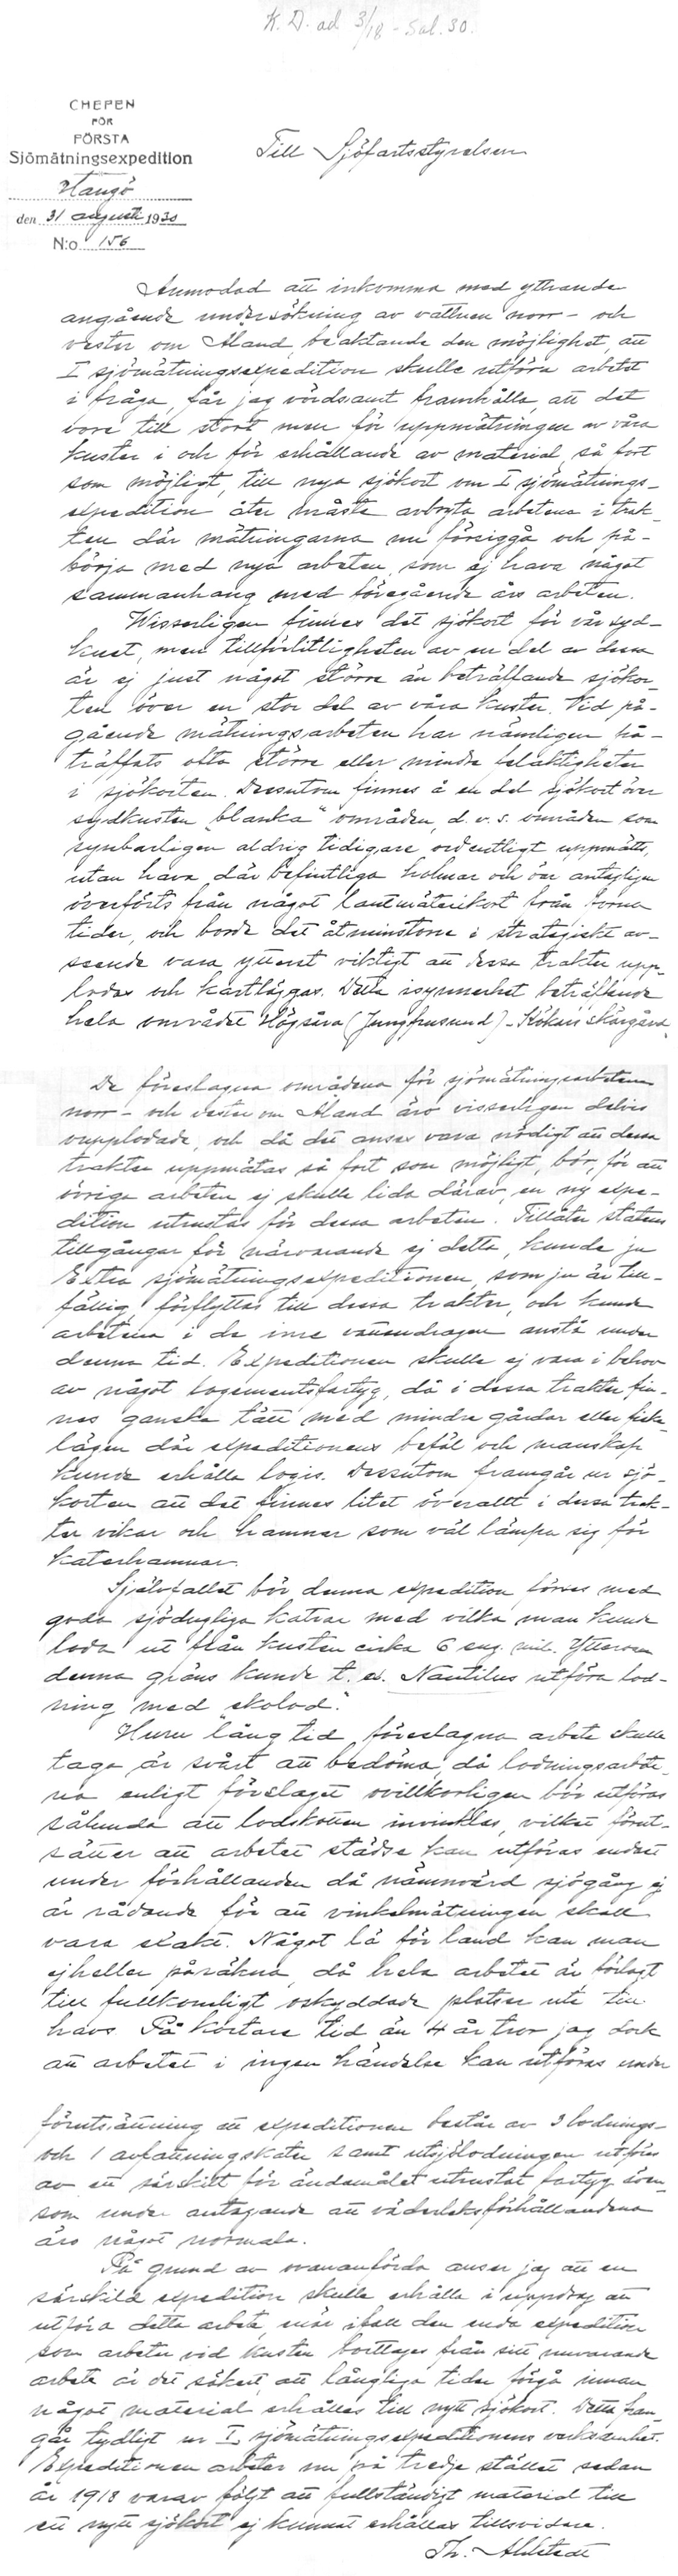 K. D. ad 3/18 - Sal. 30.
CHEFEN
FÖR
FÖRSTA
Sjömätningsexpedition
Hangö
den 31 augusti 1930
N:o 156
Till Sjöfartsstyrelsen
Anmodad att inkomma med yttrande
angående undersökning av vattnen norr- och
vester om Åland, beaktande den möjlighet, att
I sjömätningsexpedition skulle utföra arbetet
i fråga, får jag vördsamt framhålla, att det
vore till stort men för uppmätningen av våra
kuster i och för erhållande av material, så fort
som möjligt, till nya sjökort om I sjömätnings-
expedition åter måste avbryta arbetena i trak-
ten där mätningarna nu försiggå och på-
börja med nya arbeten, som ej hava något
sammanhang med föregående års arbeten.
Wisserligen finnes det sjökort för vår syd-
kust, men tillförlitligheten av en del av dessa
är ej just något större än beträffande sjökor-
ten över en stor del av våra kuster. Vid på-
gående mätningsarbeten har nämligen på-
träffats ofta större eller mindre felaktigheter
i sjökorten. Dessutom finnes å en del sjökort över
sydkusten "blanka" områden, d.v.s. områden som
synbarligen aldrig tidigare ordentligt uppmätts,
utan hava där befintliga holmar och öar antagligen
överförts från något lantmäterikort från forna
tider, och borde det åtminstone i strategiskt av-
seende vara ytterst viktigt att dessa trakter upp-
lodas och kartläggas. Detta isynnerhet beträffande
hela området Högsåra (Jungfrusund) - Kökars skärgård.
De föreslagna områdena för sjömätningsarbetena
norr- och vester om Åland äro visserligen delvis
oupplodade, och då det anses vara nödigt att dessa
trakter uppmätas så fort som möjligt, bör, för att
övriga arbeten ej skulle lida därav, en ny expe-
dition utrustas för dessa arbeten. Tillåter statens
tillgångar för närvarande ej detta, kunde ju
Extra sjömätningsexpeditionen, som ju är till-
fällig, förflyttas till dessa trakter, och kunde
arbetena i de inre vattendragen anstå under
denna tid. Expeditionen skulle ej vara i behov
av något logementsfartyg, då i dessa trakter fin-
nes ganska tätt med mindre gårdar eller fiske-
lägen där expeditionens befäl och manskap
kunde erhålla logis. Dessutom framgår ur sjö-
korten att det finnes litet överallt i dessa trak-
ter vikar och hamnar som väl lämpa sig för
katerhamnar.
Självfallet bör denna expedition förses med
goda sjödugliga katrar med vilka man kunde
loda ut från kusten cirka 6 eng. mil. Ytterom
denna gräns kunde t. ex. Nautilus utföra lod-
ning med "ekolod".
Huru lång tid föreslagna arbete skulle
taga är svårt att bedöma, då lodningsarbete-
na enligt förslaget ovillkorligen bör utföras
sålunda att lodskotten invinklas, vilket förut-
sätter att arbetet städse kan utföras endast
under förhållanden då nämnvärd sjögång ej
är rådande för att vinkelmätningen skall
vara exakt. Något lä för land kan man
ejheller påräkna, då hela arbetet är förlagt
till fullkomligt oskyddade platser ute till
havs. På kortare tid än 4 år tror jag dock
att arbetet i ingen händelse kan utföras under
förutsättning att expeditionen består av 3 lodnings-
och 1 avfattningskater samt utsjölodningen utföres
av ett särskilt för ändamålet utrustat fartyg även-
som under antagande att väderleksförhållandena
äro något normala.
På grund av ovananförda anser jag att en
särskild expedition skulle erhålla i uppdrag att
utföra detta arbete, när ifall den enda expedition
som arbetar vid kusten borttages från sitt nuvarande
arbete är det säkert, att långliga tider förgå innan
något material erhålles till nytt sjökort. Detta fram-
går tydligt ur I sjömätningsexpeditionens verksamhet.
Expeditionen arbetar nu på tredje stället sedan
år 1918 varav följt att fullständigt material till
ett nytt sjökort ej kunnat erhållas tillsvidare.
Th. Ahlstedt